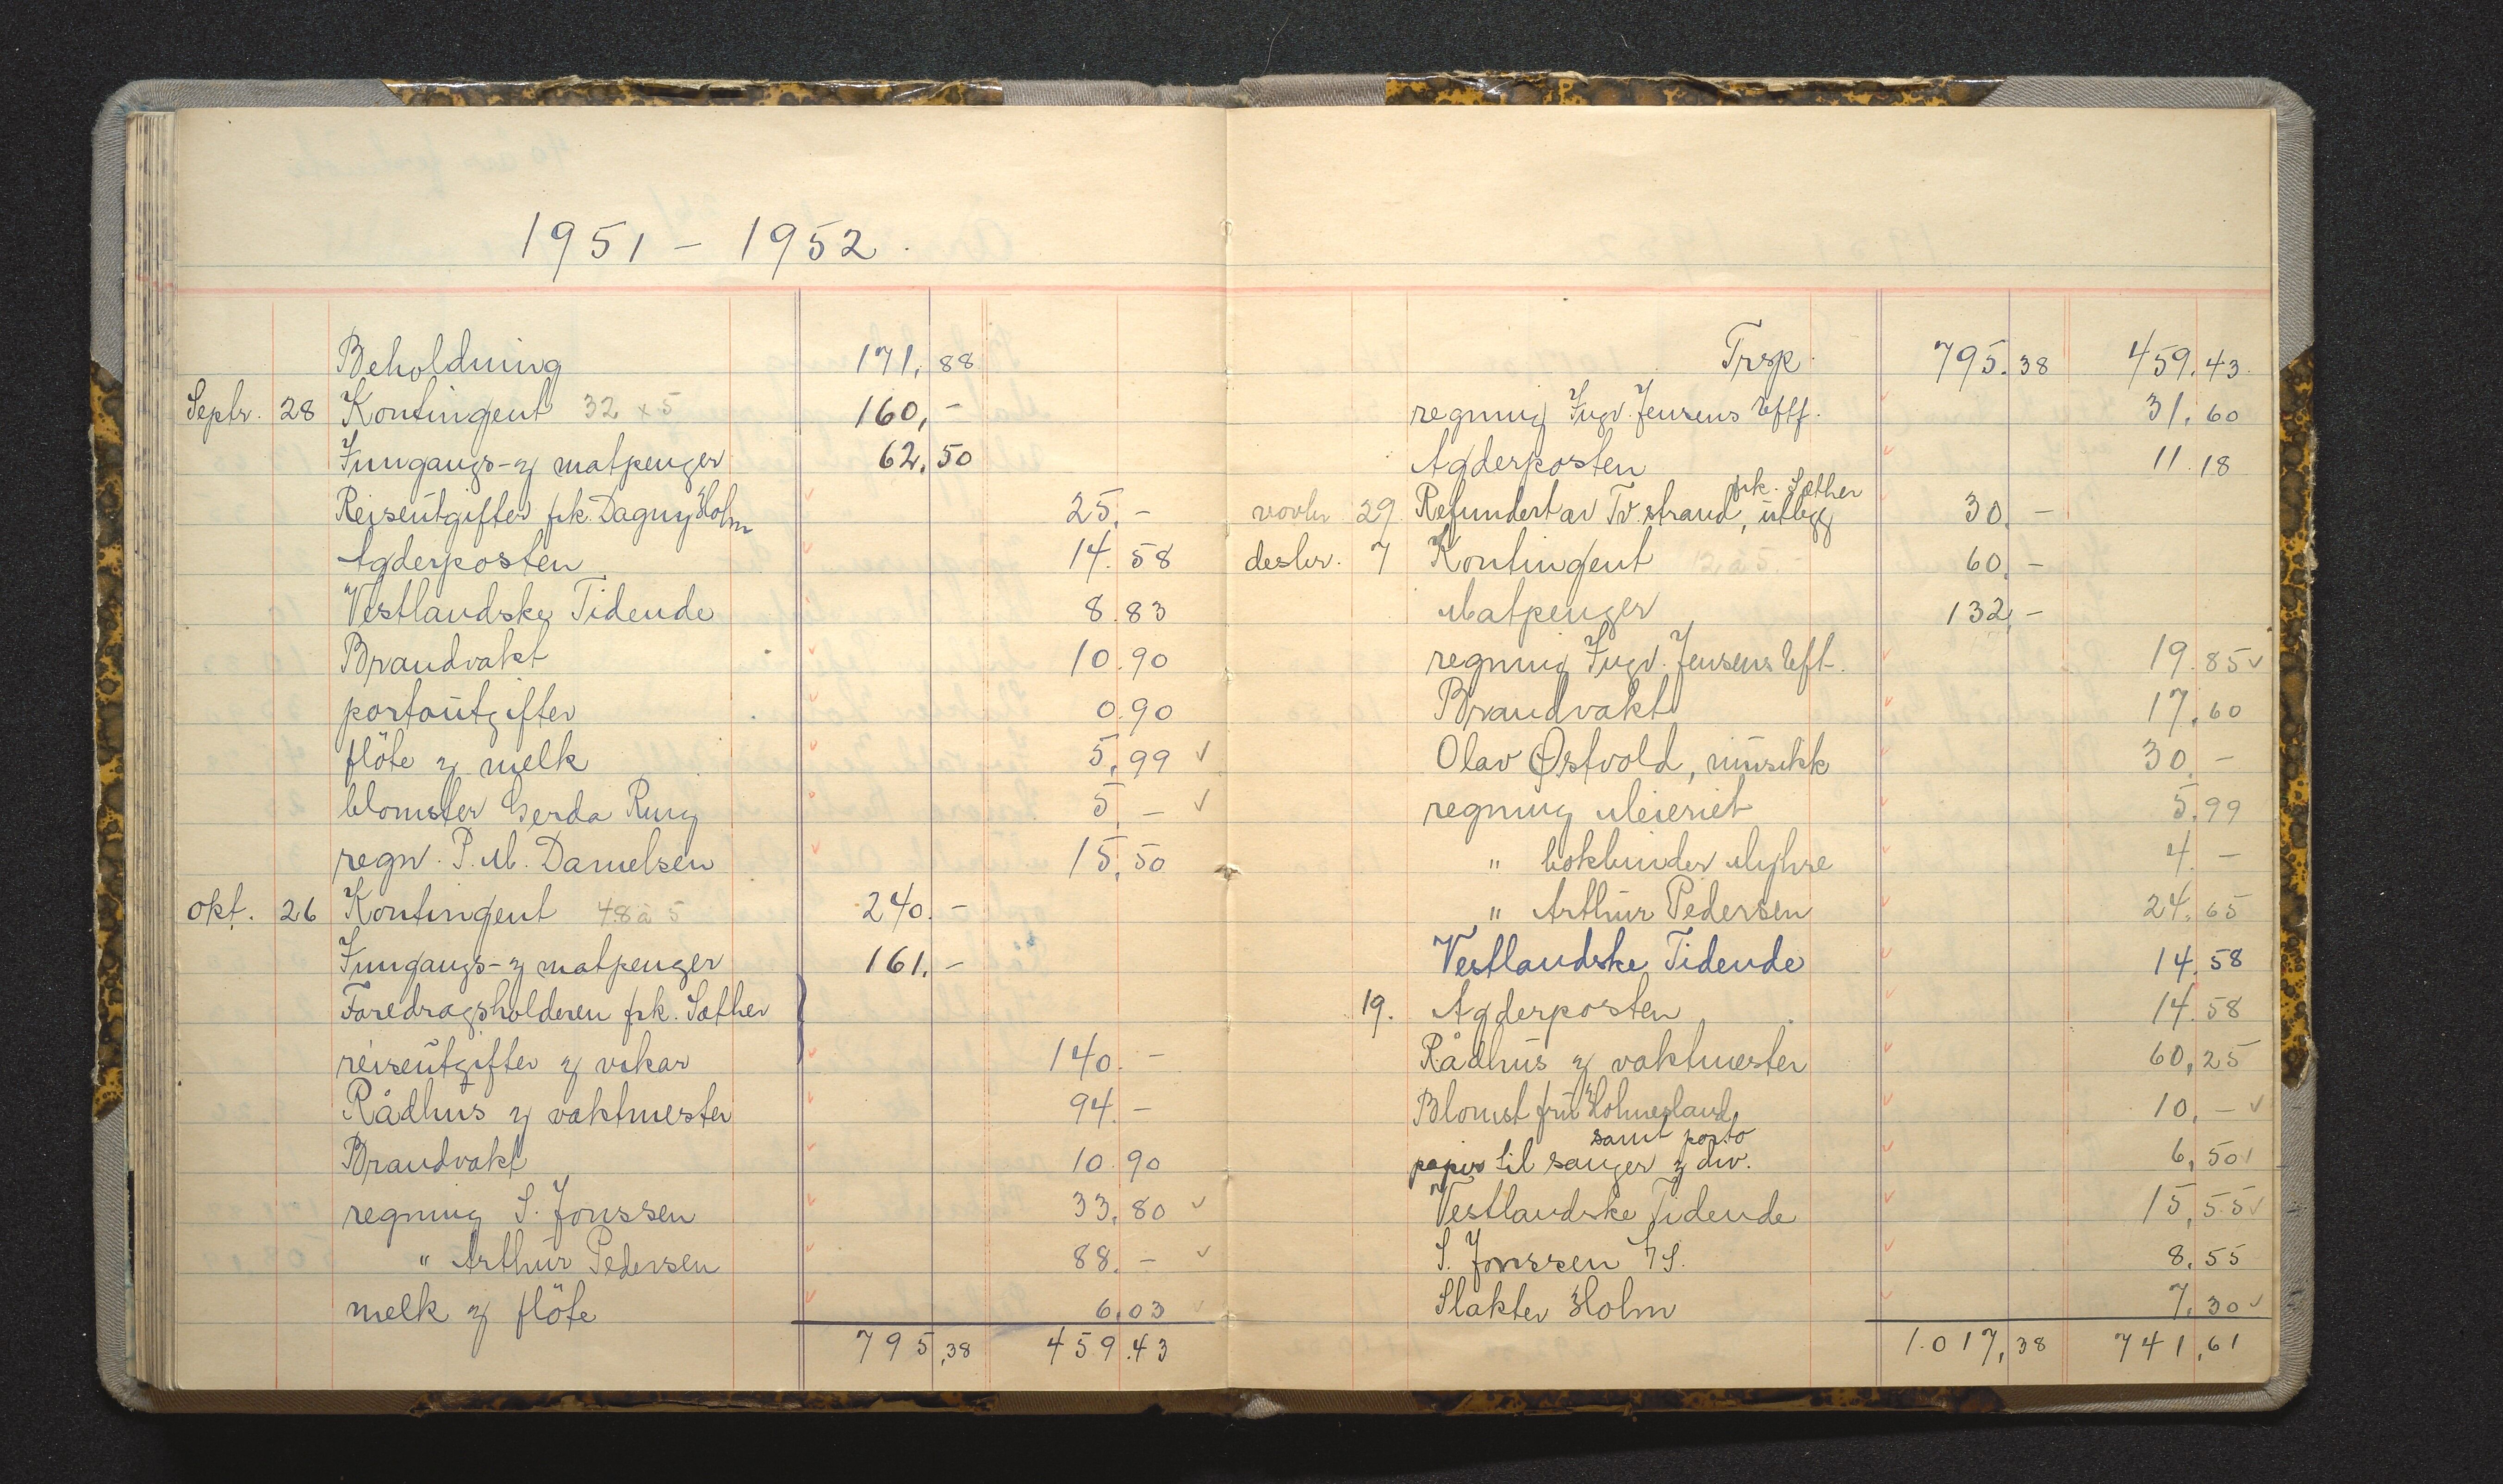 1951 - 1952.
Beholdning 171,88
Septr. 28 Kontingent 32 x 5 160,-
Inngangs- og matpenger 62,50
Reiseutgifter frk. Dagny Holm 25,-
Agderposten 14.58
Vestlandske Tidende 8.83
Brandvakt 10.90
portoutgifter 0.90
flöte og melk 5,99 ✓
blomster Gerda Ring 5,- ✓
regn. P.M. Danielsen 15,50
okt. 26 Kontingent 48 à 5 240.-
Inngangs- og matpenger 161.-
Foredragsholderen frk. Sæther
reiseutgifter og vikar 140.-
Rådhus og vaktmester 94.-
Brandvakt 10.90
regning S. Jonssen 33,80 ✓
" Arthur Pedersen 88.- ✓
melk og flöte 6.03 ✓
795,38 459.43
Trsp. 795.38 459.43.
regning Ingv. Jensens Eftf. 31,60
Agderposten 11.18
frk. Sæther
novbr 29. Refundert av Tv.strand, utlegg 30.-
desbr. 7 Kontingent 12 à 5.- 60.-
Matpenger 132,-
regning Ingv. Jensens Eft. 19.85 ✓
Brandvakt 17,60
Olav Østvold, musikk 30.-
regning Meieriet 5.99
" bokbinder Myhre 4.-
" Arthur Pedersen 24.65
Vestlandske Tidende 14.58
19. Agderposten 14.58
Rådhus og vaktmester 60,25
Blomst fru Holmesland. 10,- ✓
samt porto
papir til sanger og div. 6,50 ✓
Vestlandske Tidende 15,55 ✓
S. Jonssen A/S. 8.55
Slakter Holm 7.30 ✓
1.017,38 741,61